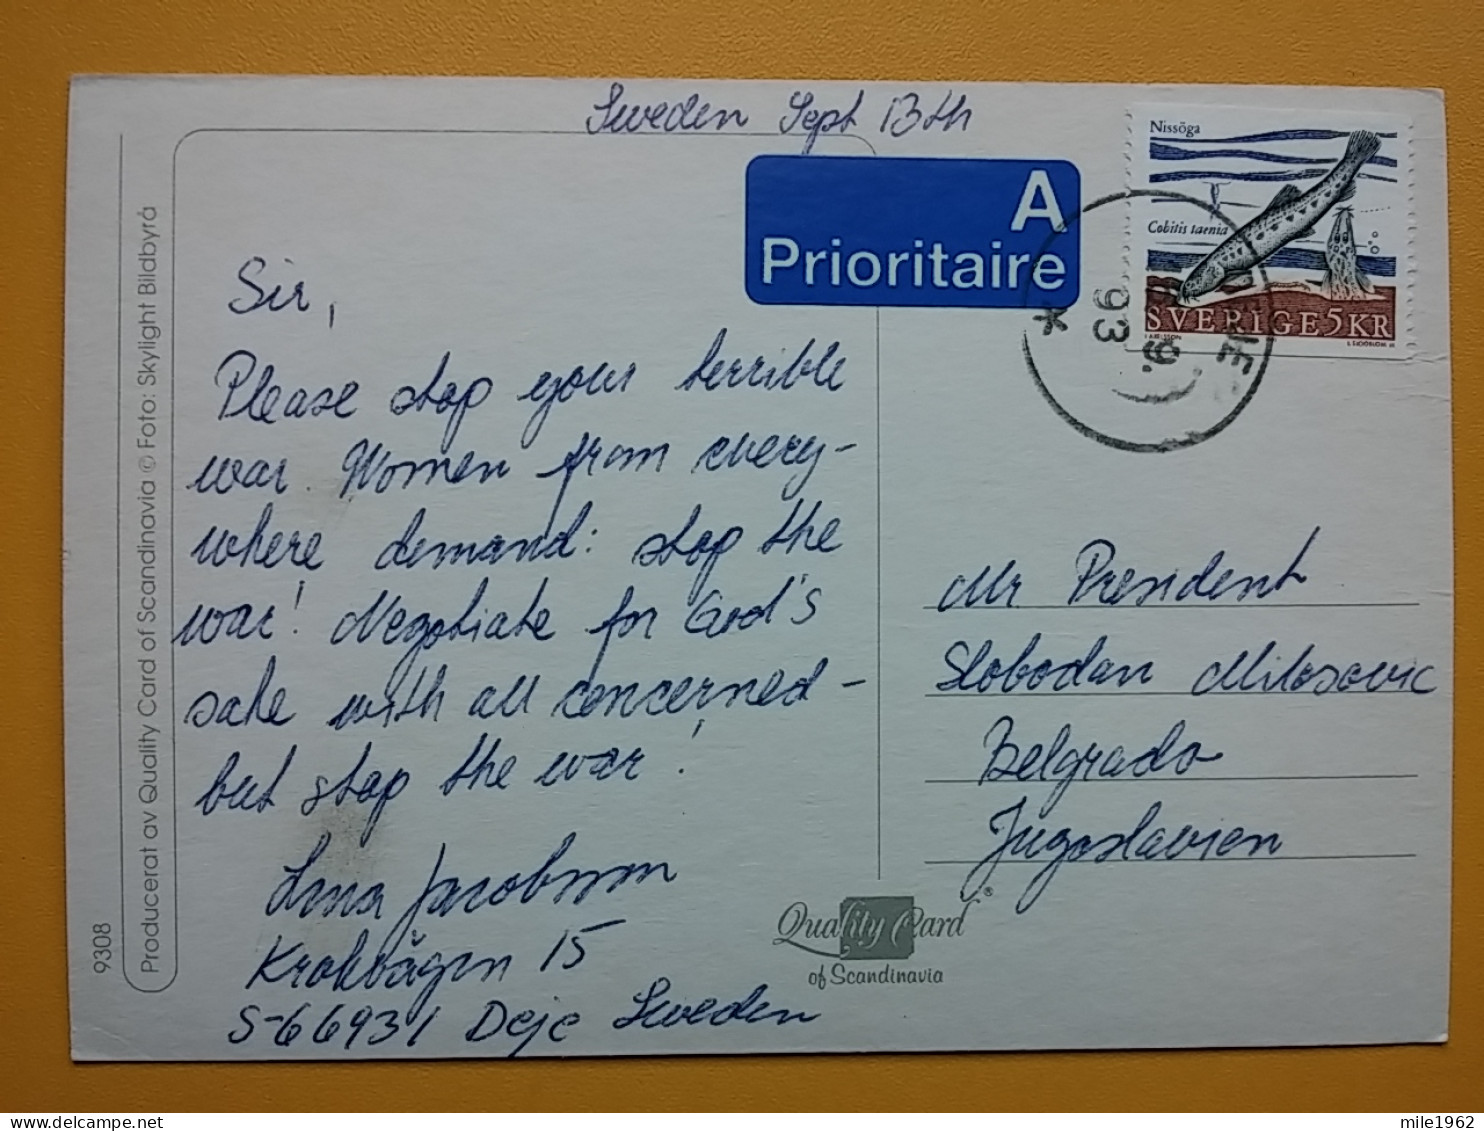 Sweden Sept 13th
A
Prioritaire
Nissöga
Cobitis taenia
SVERIGE 5 KR
9.
93
Sir,
Please stop your terrible
war. Women from every-
where demand: stop the
war! Negotiate for God's
sake with all concerned -
but stop the war!
Lena Jacobsson
Krokvägen 15
S-66931 Deje Sweden
Mr President
Slobodan Milosovic
Belgrado
Jugoslavien
Quality Card ®
of Scandinavia
9308
Producerat av Quality Card of Scandinavia © Foto: Skylight Bildbyrå
mile1962